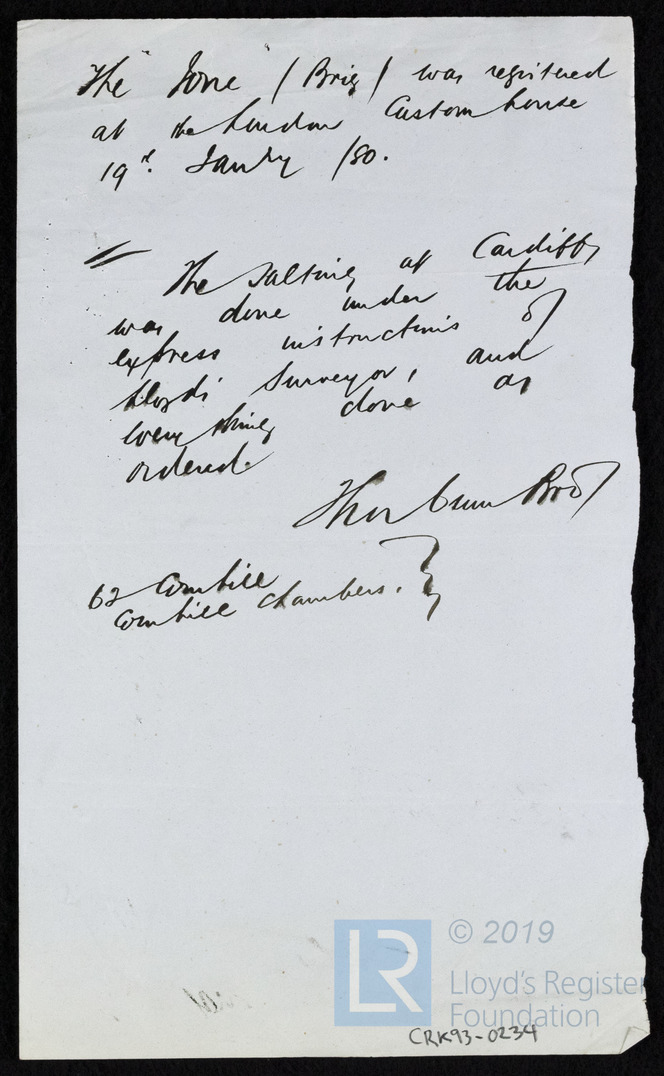 The "Ione" (Brig) was registered
at the London Custom house
19th. Janry /80.
The Salting at Cardiff
was done under the
express instructions of
Lloyds Surveyor, and
every thing done as
ordered.
Thorburn Bros
62 Cornhill
Cornhill Chambers.
© 2019
LR
Lloyd's Register
Foundation
CRK93-0234